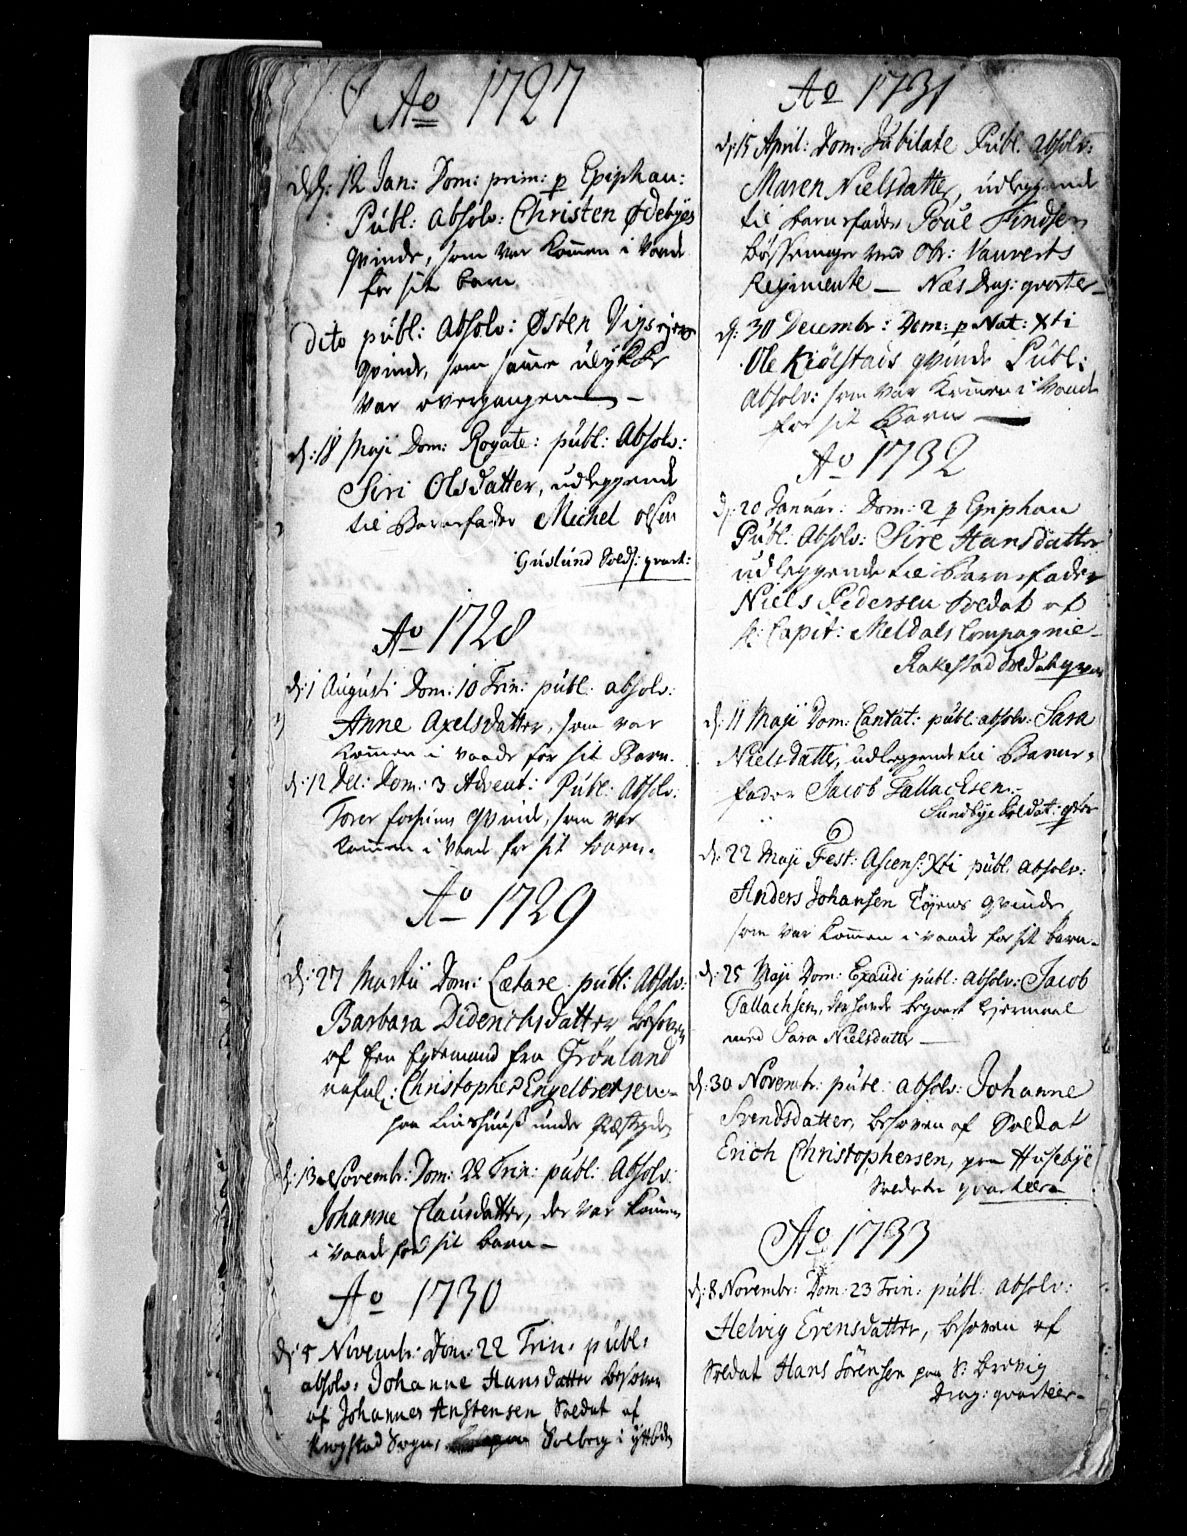 Ao 1727
d: 12 Jan: Dom: prim: p Epiphan:
Publ: Absolv: Christen Ødebyes
qvinde, som var kommen i vaade
for sit barn
Dito publ: Absolv: Østen
qvinde, som samme ulykke
var overgangen —
d: 18 Maji Dom: Rogate: publ: Absolv:
Siri Olsdatter, udleggende
til Barnefader Michel Olsen
Guslund Sold: qvart:
Ao 1728
d: 1 Augusti Dom: 10 Trin: publ: absolv:
Anne Axelsdatter, som var
kommen i vaade for sit Barn.
d: 12 Dec: Dom: 3 Advent: Publ: Absolv:
Torer qvinde, som var
kommen i vaade for sit barn.
Ao 1729
d: 27 Martii Dom: Lætare publ: Absolv:
Barbara Diderichsdatter besoven
af en fra Grønland
nafnl: Christopher Engelbretsen
paa under
d: 13 Novembr: Dom: 22 Trin: publ: Absolv:
Johanne Clausdatter, der var kommen
i vaade for sit barn —
Ao 1730
d: 5 Novembr: Dom: 22 Trin: publ:
absolv: Johanne Hansdatter besoven
af Johannes Anstensen Soldat af
Krogstad Sogn, Solberg i
Ao 1731
d: 15 April: Dom: Jubilate Publ: absolv:
Maren Nielsdatter, udleggende
til barnefader Poul Findsen
ved Obr: Vauverts
Regimente — Næs Drag: qvarter —
d: 30 Decembr: Dom: p Nat: Xti
Ole Kiølstads qvinde Publ:
Absolv: som var kommen i vaade
for sit Barn —
Ao 1732
d: 20 Januar: Dom: 2 p Epiphan
Publ: Absolv: Sire Hansdatter
udleggende til Barnefader
Niels Pedersen Soldat af
Hr: Capit: Meldals Compagnie —
Rakestad Soldat qvar
d: 11 Maji Dom: Cantat: publ: absolv: Sara
Nielsdatter, udleggende til Barne-
fader Jacob Tallachsen.
Sundbye Soldat: qvar
d: 22 Maji Fest: Ascens: Xti publ: absolv:
Anders Johansen Tøyens qvinde
som var kommen i vaade for sit barn —
d: 25 Maji Dom: Exaudi publ: absolv: Jacob
Tallachsen, der hafde begaaet Leiermaal
med Sara Nielsdatter —
d: 30 Novembr: publ: absolv: Johanne
Svendsdatter, besoven af Soldat
Erich Christophersen, paa Husebye
Soldater qvarteer
Ao 1733
d: 8 Novembr: Dom: 23 Trin: publ: absolv:
Helvig Evensdatter, besoven af
Soldat Hans Sørensen paa
Drag: qvarteer —